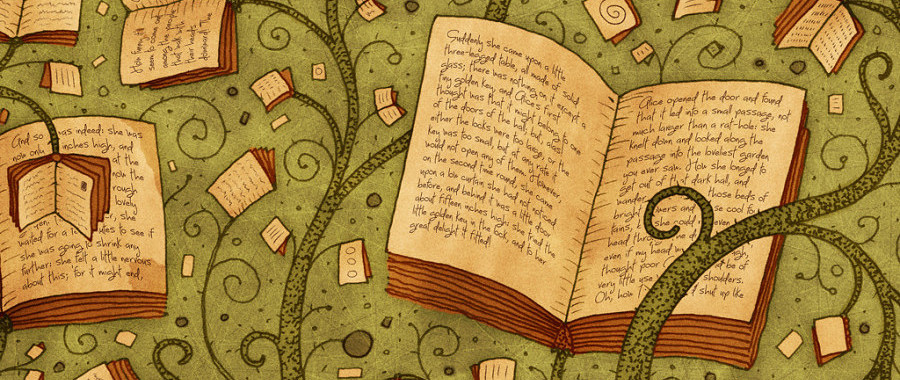 And so was indeed: she was
now only inches high, and
at the
now the
rough
lovely
she
waited for a minutes to see if
she was going shrink any
further: she felt a little nervous
about this; 'for it might end,
Suddenly she came upon a little
three-legged table, all made of solid
glass; there was nothing on it except a
tiny golden key, and Alice's first
thought was that it might belong to one
of the doors of the hall; but, alas!
either the locks were too large, or the
key was too small, but at any rate it
would not open any of them. However,
on the second time round, she came
upon a low curtain she had not noticed
before, and behind it was a little door
about fifteen inches high: she tried the
little golden key in the lock, and to her
great delight it fitted!
Alice opened the door and found
that it led into a small passage, not
much larger than a rat-hole: she
knelt down and looked along the
passage into the loveliest garden
you ever saw. How she longed to
get out of that dark hall, and
wander those beds of
bright flowers and those cool
she could even
head thr
even if my head
thought poor at be of
very little use shoulders.
Oh, how I shut up like